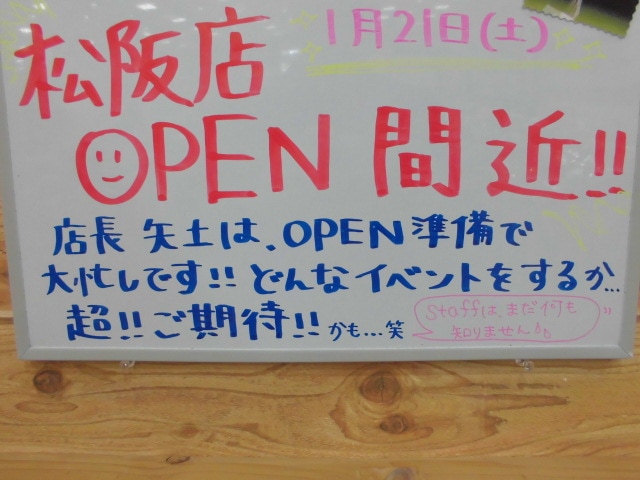 1月21日(土)
松阪店
OPEN間近!!
店長 矢土は、OPEN準備で
大忙しです!! どんなイベントをするか…
超!!ご期待!! かも…笑
staffは、まだ何も
知りません